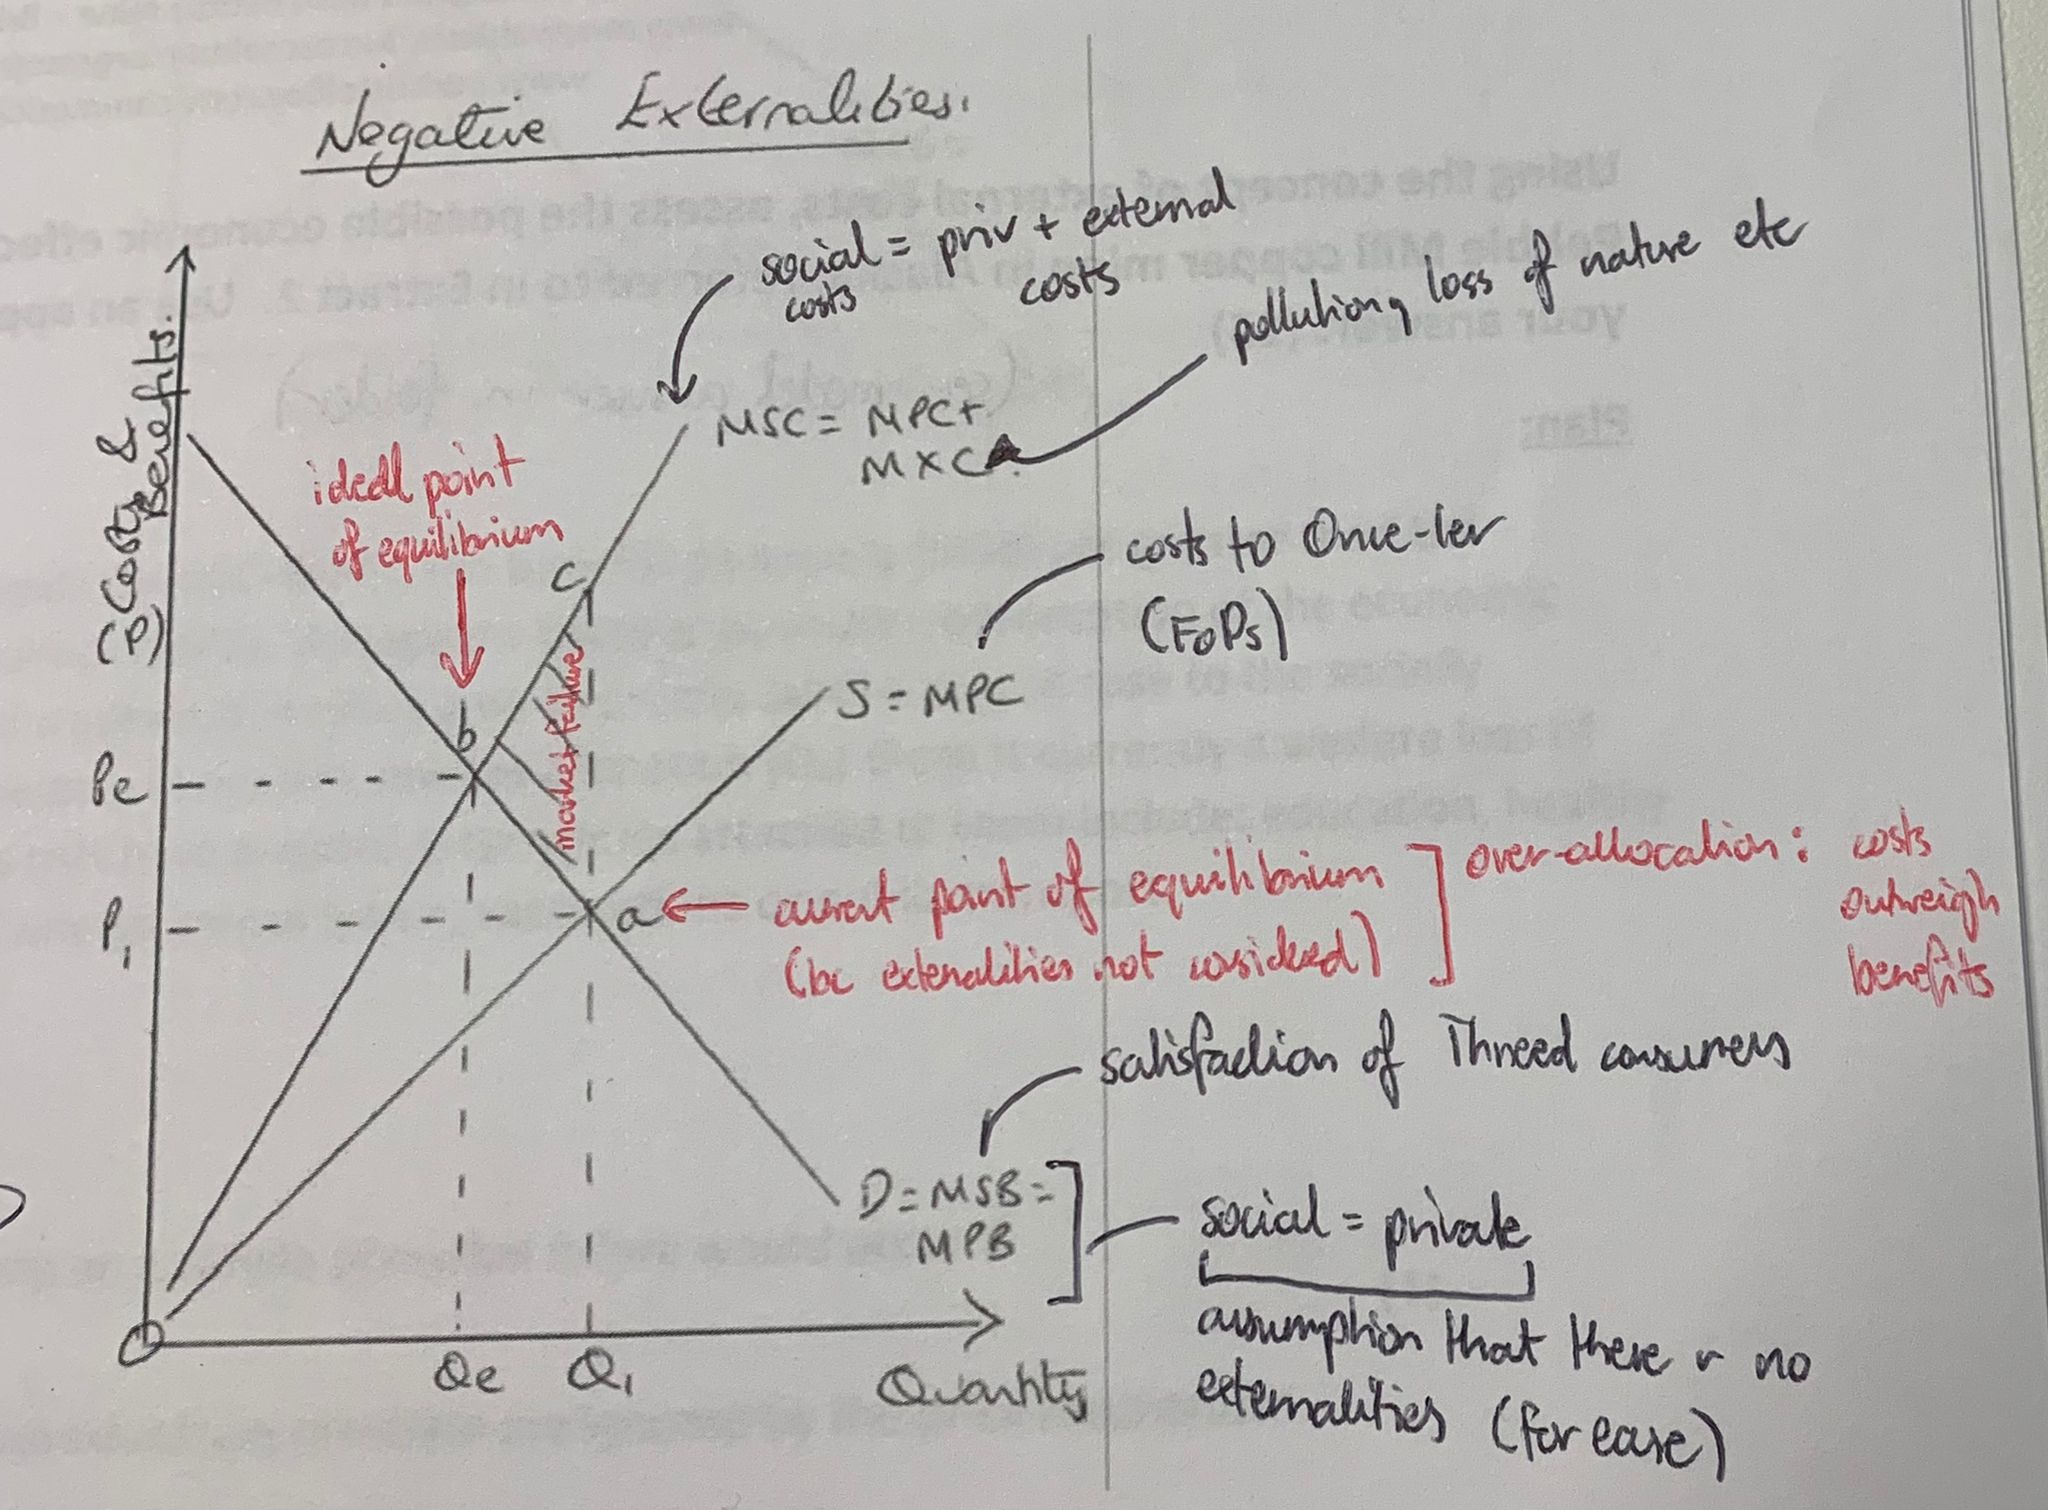 Negative Externalities.
social = priv + external
costs costs
pollution, loss of nature etc
(P) Costs &
Benefits.
MSC = MPC +
MXC
ideal point
of equilibrium
costs to Once-ler
(FoPs)
c
S = MPC
market failure
b
Pe
P1
a
current point of equilibrium
(bc externalities not considered)
over-allocation: costs
outweigh
benefits
satisfaction of Thneed consumers
D = MSB =
MPB
social = private
assumption that there no
externalities (for ease)
O
Qe
Q1
Quantity